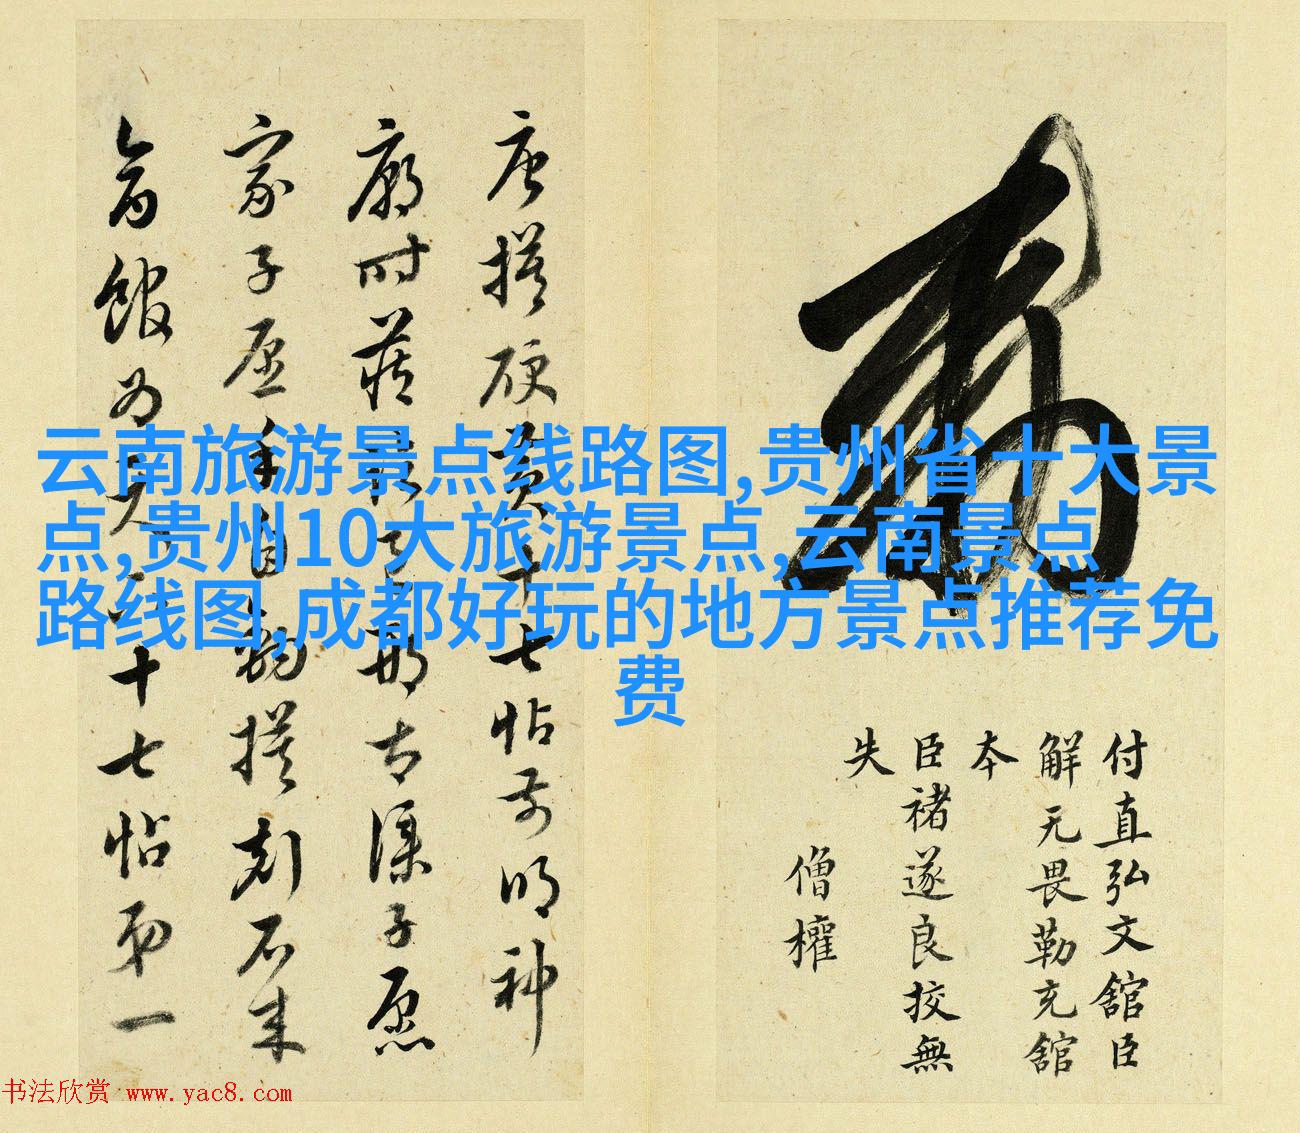 敕
付直弘文館臣
解无畏勒充館
本
臣褚遂良挍無
失
僧權
唐摸硬黄十七帖前明神
廟時藏
家子孫手自鉤摸刻石来
禽館為
十七帖弟一
云南旅游景点线路图,贵州省十大景
点,贵州10大旅游景点,云南景点
路线图,成都好玩的地方景点推荐免
费
书法欣赏 www.yac8.com